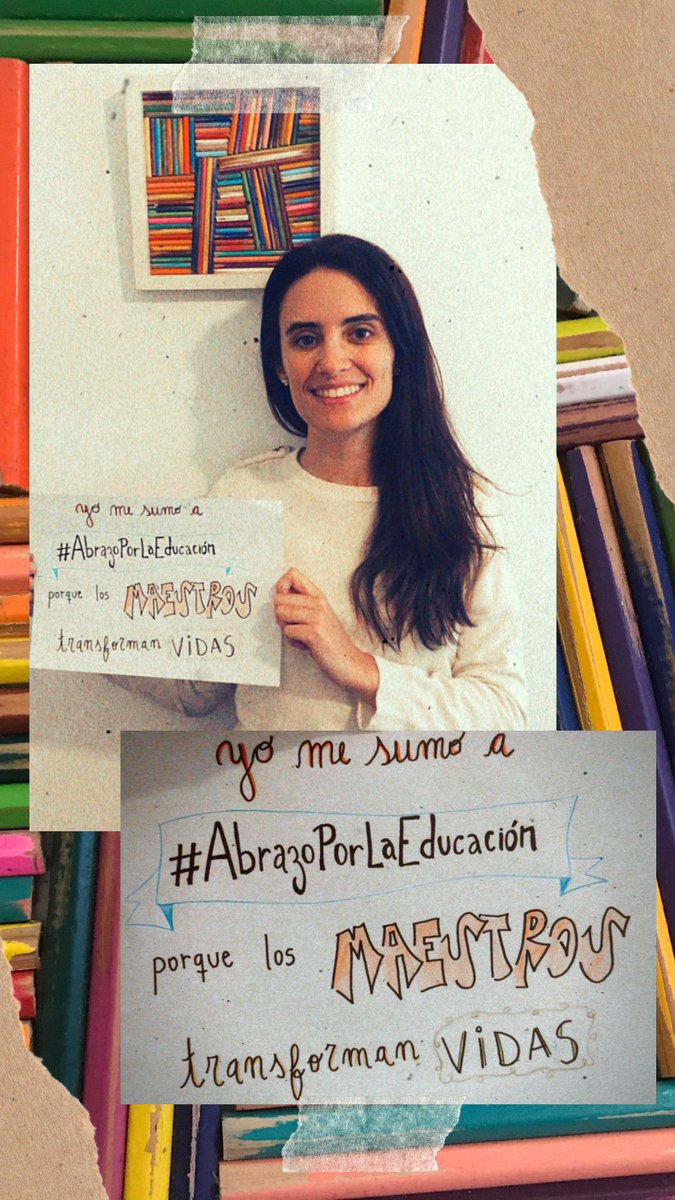 yo me sumo a
#AbrazoPorLaEducación
porque los MAESTROS
transforman VIDAS
yo me sumo a
#AbrazoPorLaEducación
porque los MAESTROS
transforman VIDAS